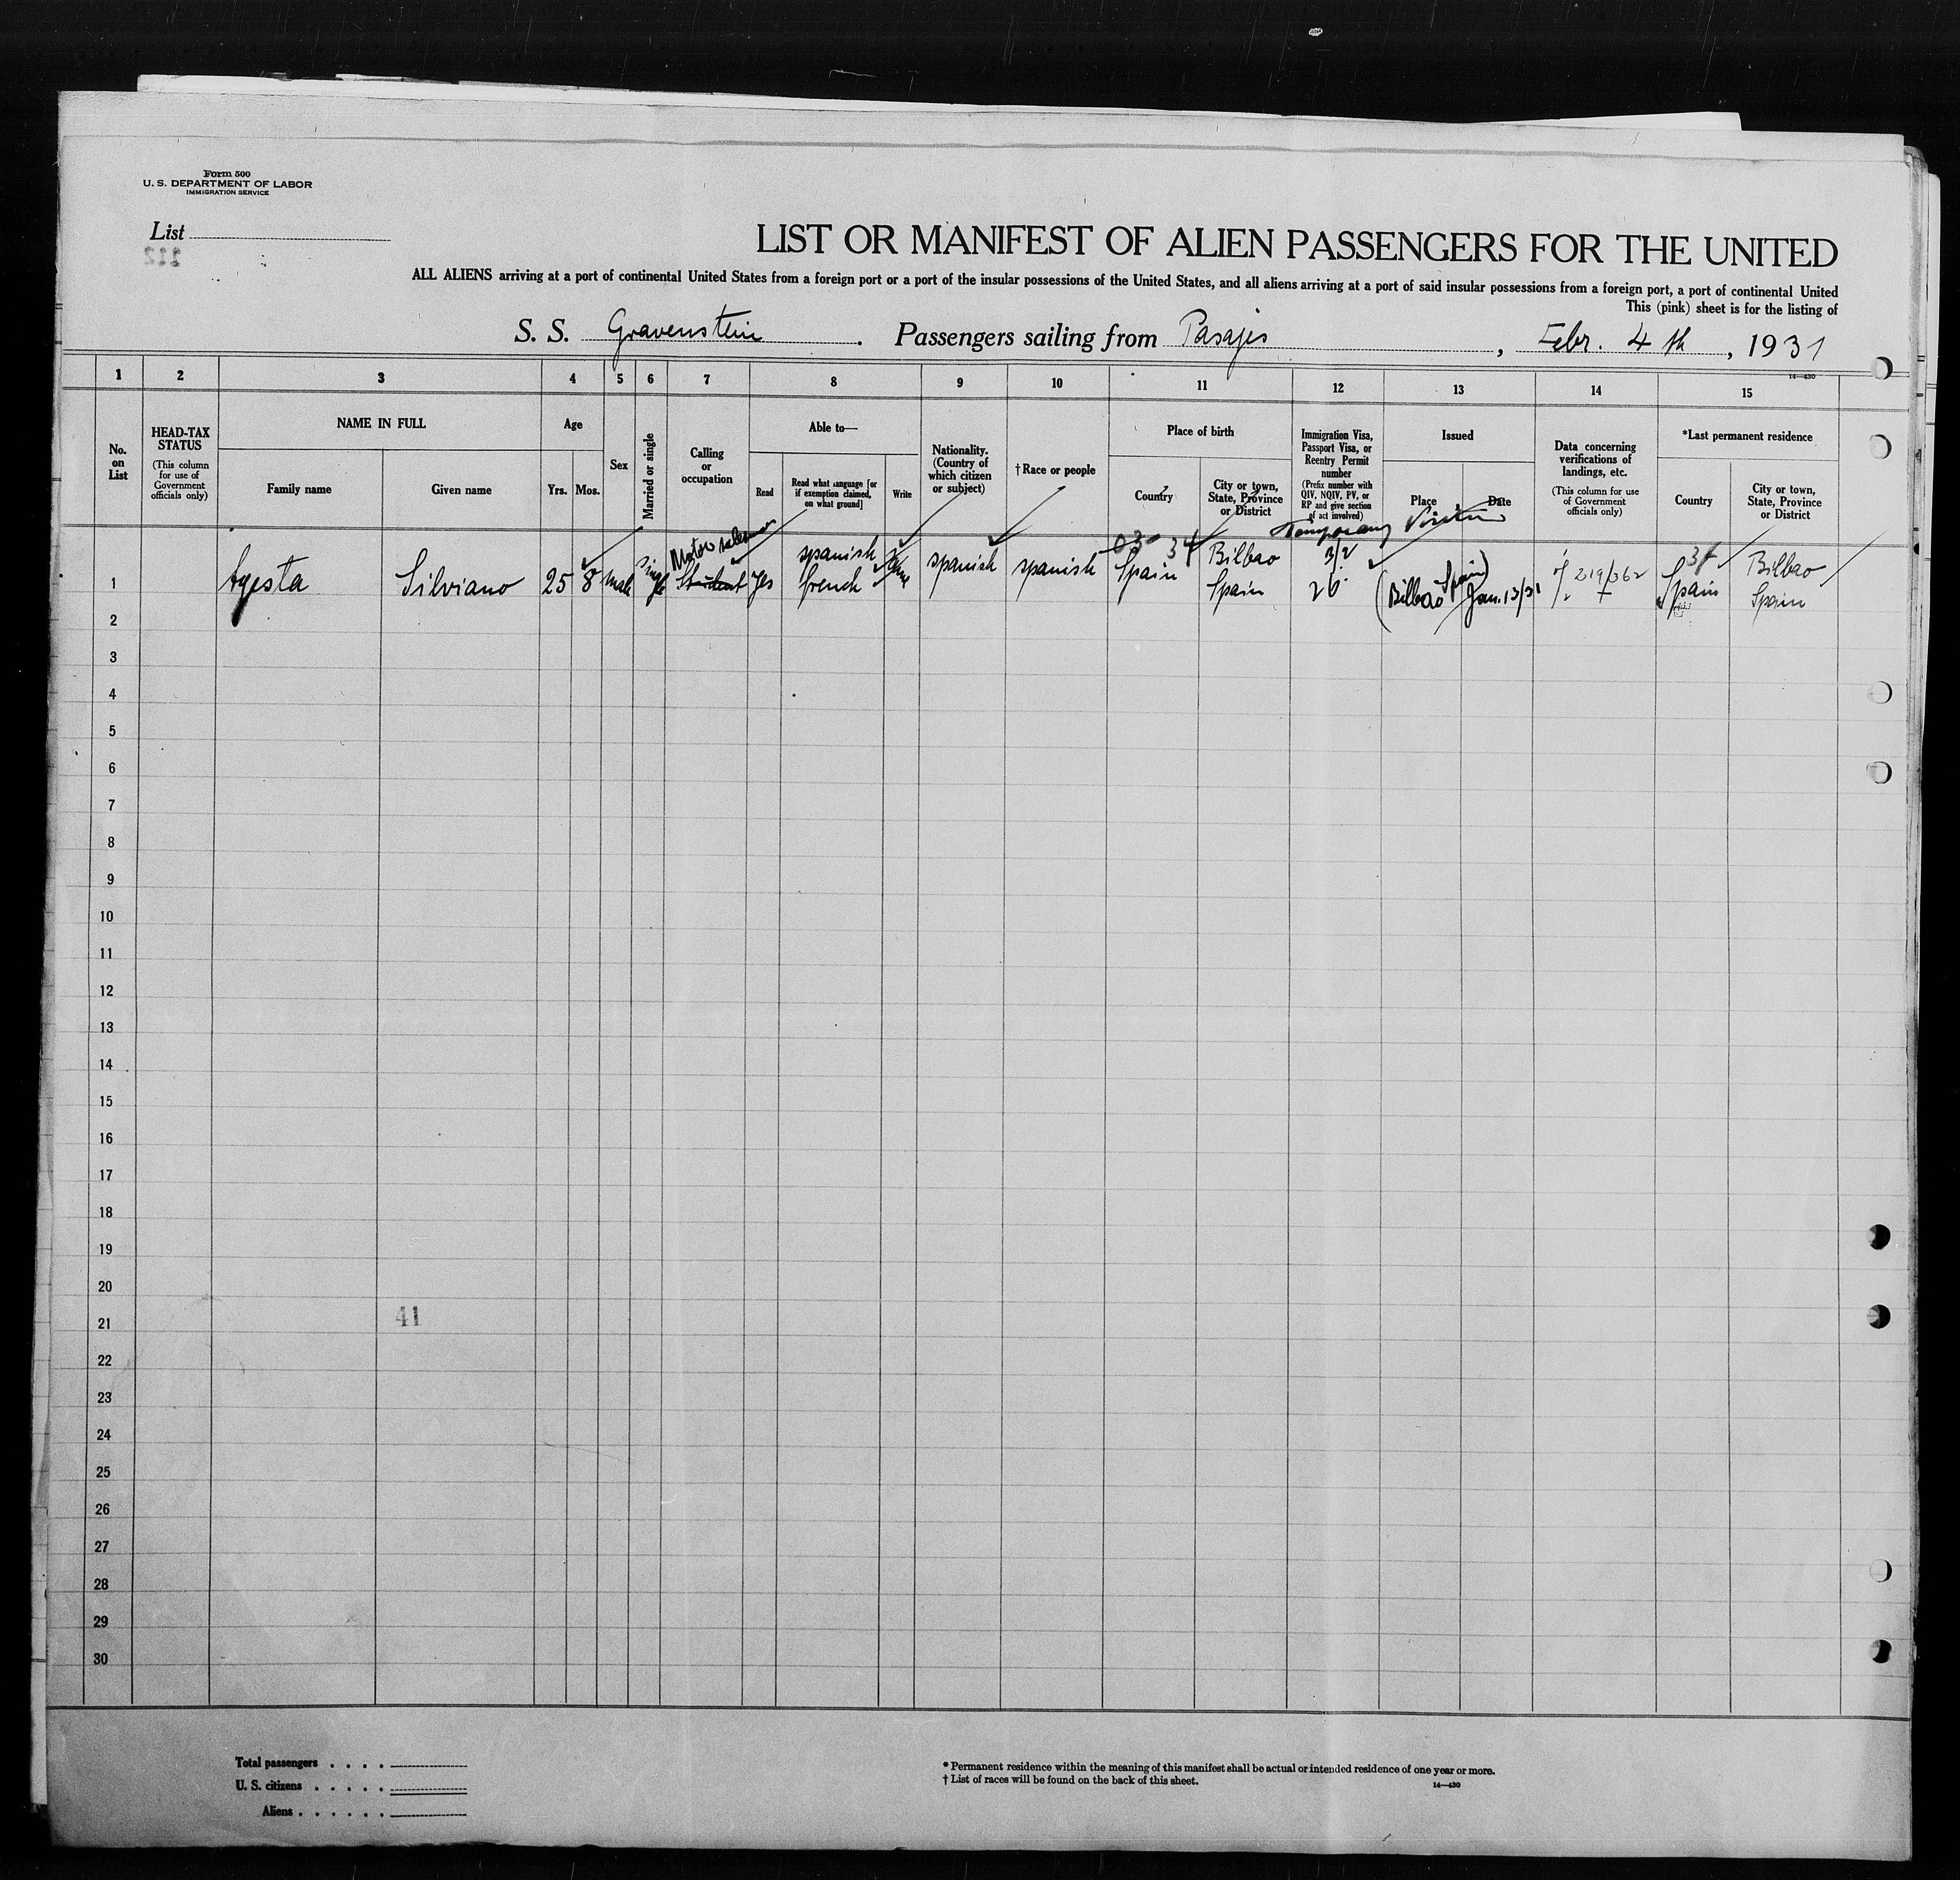 Form 500
U. S. DEPARTMENT OF LABOR
IMMIGRATION SERVICE
List
112
LIST OR MANIFEST OF ALIEN PASSENGERS FOR THE UNITED
ALL ALIENS arriving at a port of continental United States from a foreign port or a port of the insular possessions of the United States, and all aliens arriving at a port of said insular possessions from a foreign port, a port of continental United
This (pink) sheet is for the listing of
S. S. Gravenstein. Passengers sailing from Pasajes, Febr. 4 th, 1931
14—430
1 2 3 4 5 6 7 8 9 10 11 12 13 14 15
No. on List
HEAD-TAX STATUS
(This column for use of Government officials only)
NAME IN FULL
Family name
Given name
Age
Yrs.
Mos.
Sex
Married or single
Calling or occupation
Able to—
Read
Read what language [or if exemption claimed, on what ground]
Write
Nationality. (Country of which citizen or subject)
† Race or people
Place of birth
Country
City or town, State, Province or District
Immigration Visa, Passport Visa, or Reentry Permit number
(Prefix number with QIV, NQIV, PV, or RP and give section of act involved)
Issued
Place
Date
Data concerning verifications of landings, etc.
(This column for use of Government officials only)
*Last permanent residence
Country
City or town, State, Province or District
Temporary Visitor
Motor salesman
1 Agesta Silviano 25 8 Male Single Student Yes spanish french spanish spanish Spain Bilbao Spain 3/2 26 (Bilbao Spain) Jan. 13/31 219/362 Spain Bilbao Spain
2
3
4
5
6
7
8
9
10
11
12
13
14
15
16
17
18
19
20
21
41
22
23
24
25
26
27
28
29
30
Total passengers . . . .
U. S. citizens . . . . .
Aliens . . . . . .
* Permanent residence within the meaning of this manifest shall be actual or intended residence of one year or more.
† List of races will be found on the back of this sheet.
14—430